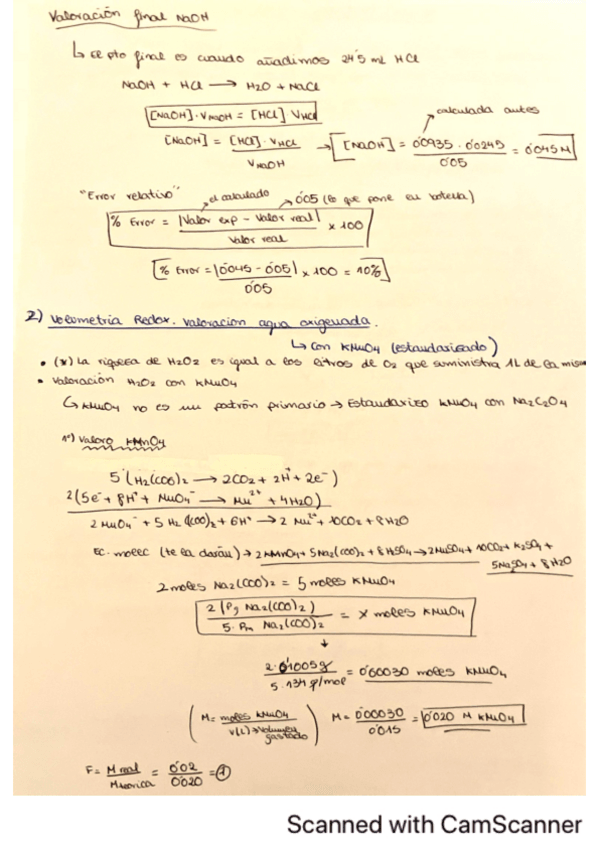 Valoración final NaOH
↳ el pto final es cuando añadimos 24'5 mL HCl
NaOH + HCl → H2O + NaCl
[NaOH]·VNaOH = [HCl] VHCl
calculada antes
[NaOH] = [HCl]·VHCl / VNaOH → [NaOH] = 0'0935 · 0'0245 / 0'05 = 0'045 M
"Error relativo"
el calculado
0'05 (lo que pone en botella)
% Error = |Valor exp - Valor real| / Valor real x 100
% Error = |0'045 - 0'05| / 0'05 x 100 = 10%
2) Volumetría Redox. Valoración agua oxigenada.
↳ con KMnO4 (estandarizado)
• (*) La riqueza de H2O2 es igual a los litros de O2 que suministra 1L de la mism
• Valoración H2O2 con KMnO4
↳ KMnO4 no es un patrón primario → Estandarizo KMnO4 con Na2C2O4
1º) Valoro KMnO4
5 (H2(COO)2 → 2CO2 + 2H+ + 2e-)
2 (5e- + 8H+ + MnO4- → Mn2+ + 4H2O)
2 MnO4- + 5 H2(COO)2 + 6H+ → 2 Mn2+ + 10CO2 + 8H2O
EC. molec (te la darán) → 2 KMnO4 + 5Na2(COO)2 + 8H2SO4 → 2MnSO4 + 10CO2 + K2SO4 +
5Na2SO4 + 8H2O
2 moles Na2(COO)2 = 5 moles KMnO4
2 (Pg Na2(COO)2) / 5. Pm Na2(COO)2 = x moles KMnO4
↓
2·0'1005g / 5.134 g/mol = 0'00030 moles KMnO4
(M = moles KMnO4 / V(L) → volumen gastado) M = 0'00030 / 0'015 = 0'020 M KMnO4
F = M real / M teorica = 0'02 / 0'020 = 1
Scanned with CamScanner